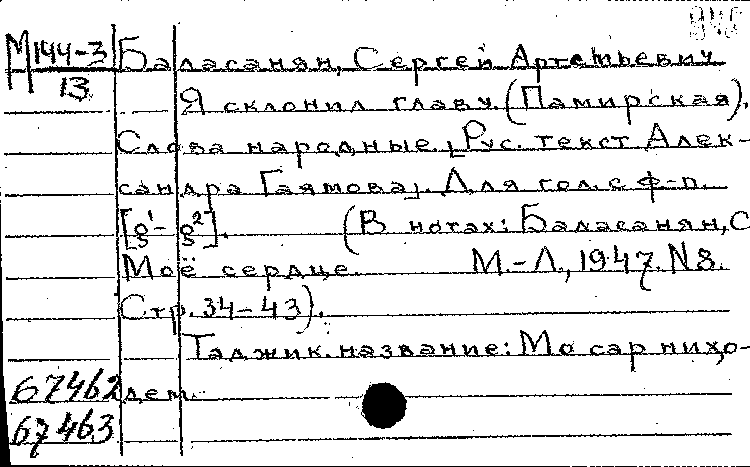 М144-3
13
Баласанян, Сергей Артемьевич
Я склонил главу. (Памирская).
Слова народные. [Рус. текст Алек-
сандра Гаямова]. Для гол. с ф-п.
[g¹- g²]. (В нотах: Баласанян, С
Моё сердце. М.-Л., 1947. N 8.
Стр. 34-43).
Таджик. название: Мо сар нихо-
67462 дем.
67463